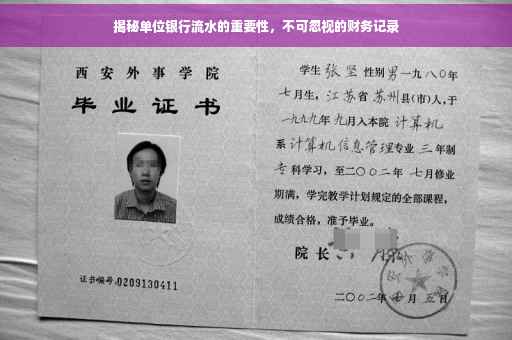 揭秘单位银行流水的重要性，不可忽视的财务记录
西安外事学院
毕业证书
证书编号:0209130411
学生 张坚 性别 男 一九八〇年
七月生，江苏省 苏州县(市)人,于
一九九九年 九月入本院 计算机
系 计算机信息管理专业 三 年制
专 科学习，至二〇〇二年 七月修业
期满，学完教学计划规定的全部课程，
成绩合格，准予毕业。
院 长
二〇〇二年 月 五日